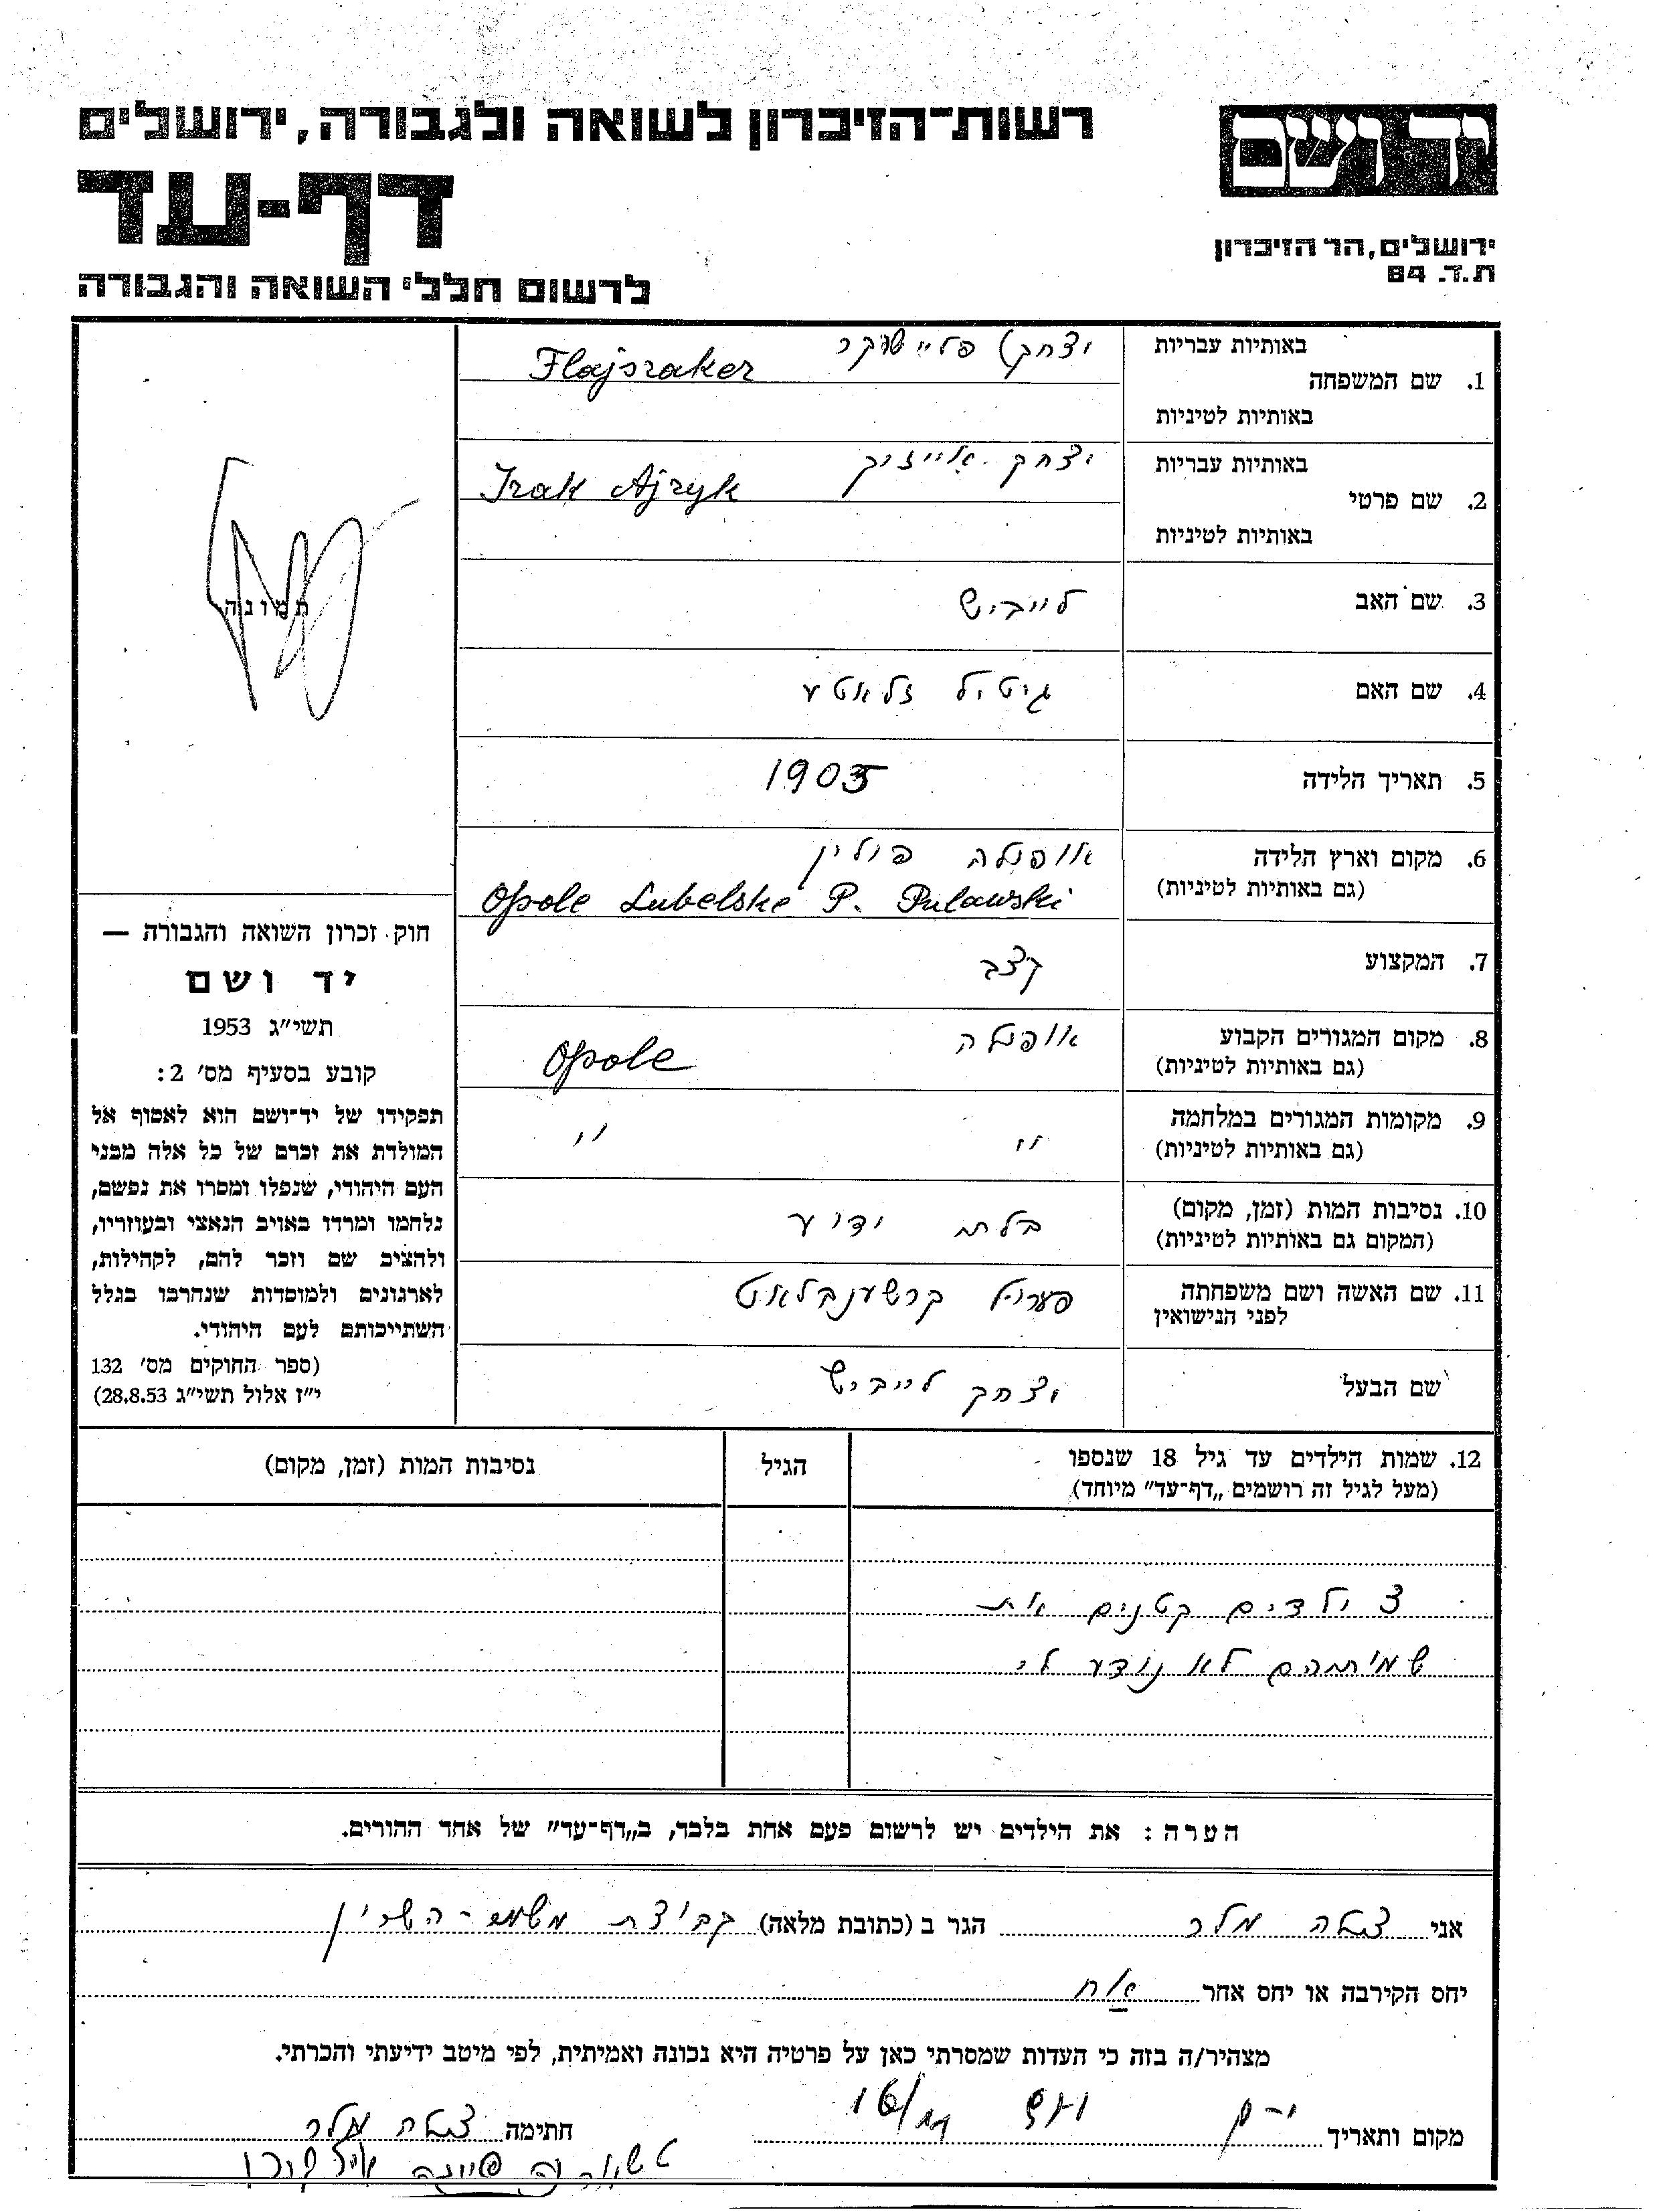 יד ושם
רשות־הזיכרון לשואה ולגבורה, ירושלים
דף-עד
ירושלים, הר הזיכרון
ת.ד. 84
לרשום חללי השואה והגבורה
באותיות עבריות
יצחק
1. שם המשפחה
Flajszaker
באותיות לטיניות
באותיות עבריות
יצחק אייזיק
2. שם פרטי
Izak Ajzyk
באותיות לטיניות
3. שם האב
לייביש
4. שם האם
גיטל זלאטע
5. תאריך הלידה
1905
6. מקום וארץ הלידה
(גם באותיות לטיניות)
אופולה פולין
Opole Lubelskie P. Pulawski
7. המקצוע
קצב
8. מקום המגורים הקבוע
(גם באותיות לטיניות)
אופולה Opole
9. מקומות המגורים במלחמה
(גם באותיות לטיניות)
" "
10. נסיבות המות (זמן, מקום)
(המקום גם באותיות לטיניות)
בלתי ידוע
11. שם האשה ושם משפחתה
לפני הנישואין
שם הבעל
יצחק לייביש
תמונה
חוק זכרון השואה והגבורה —
יד ושם
תשי״ג 1953
קובע בסעיף מס׳ 2:
תפקידו של יד־ושם הוא לאסוף אל
המולדת את זכרם של כל אלה מבני
העם היהודי, שנפלו ומסרו את נפשם,
נלחמו ומרדו באויב הנאצי ובעוזריו,
ולהציב שם וזכר להם, לקהילות,
לארגונים ולמוסדות שנחרבו בגלל
השתייכותם לעם היהודי.
(ספר החוקים מס׳ 132
י״ז אלול תשי״ג 28.8.53)
12. שמות הילדים עד גיל 18 שנספו
(מעל לגיל זה רושמים „דף־עד״ מיוחד)
הגיל
נסיבות המות (זמן, מקום)
3 ילדים קטנים את
שמותהם לא נודע לי
הערה: את הילדים יש לרשום פעם אחת בלבד, ב„דף־עד״ של אחד ההורים.
אני הגר ב (כתובת מלאה) קבוצת משמר-השרון
יחס הקירבה או יחס אחר אח
מצהיר/ה בזה כי העדות שמסרתי כאן על פרטיה היא נכונה ואמיתית, לפי מיטב ידיעתי והכרתי.
מקום ותאריך
חתימה